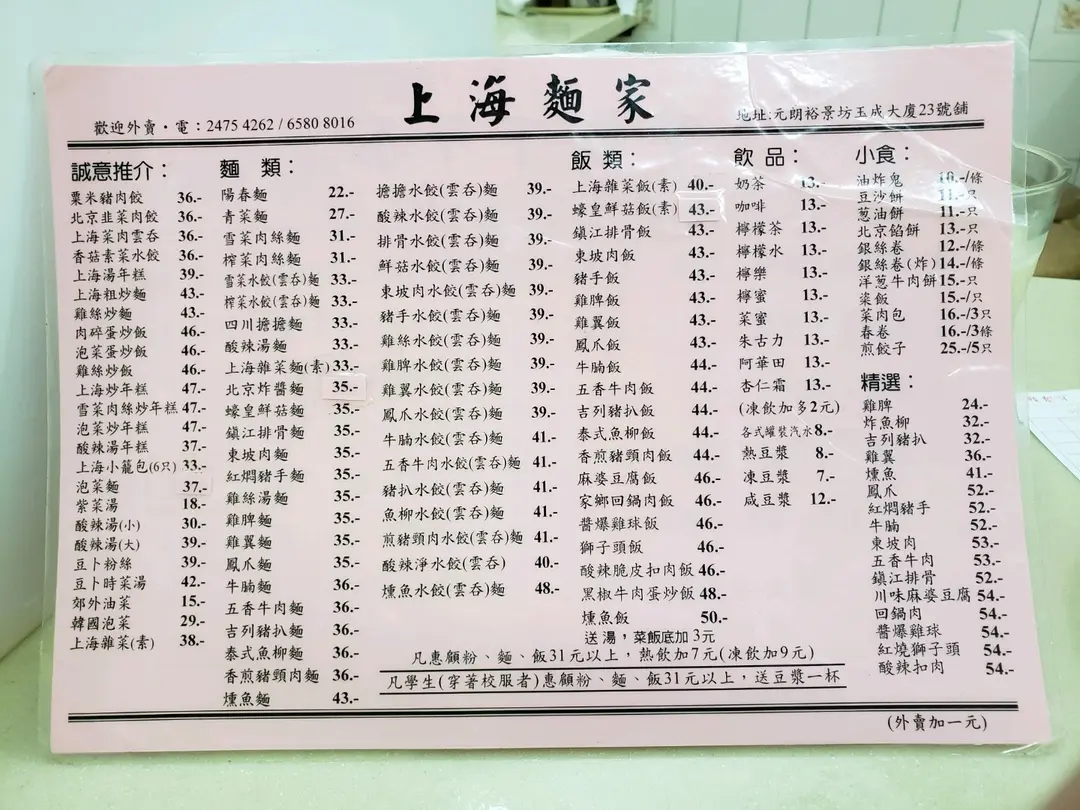 上海麵家
歡迎外賣・電：2475 4262 / 6580 8016
地址:元朗裕景坊玉成大廈23號舖
誠意推介：
粟米豬肉餃 36.-
北京韭菜肉餃 36.-
上海菜肉雲吞 36.-
香菇素菜水餃 36.-
上海湯年糕 39.-
上海粗炒麵 43.-
雞絲炒麵 43.-
肉碎蛋炒飯 46.-
泡菜蛋炒飯 46.-
雞絲炒飯 46.-
上海炒年糕 47.-
雪菜肉絲炒年糕 47.-
泡菜炒年糕 47.-
酸辣湯年糕 37.-
上海小籠包(6只) 33.-
泡菜麵 37.-
紫菜湯 18.-
酸辣湯(小) 30.-
酸辣湯(大) 39.-
豆卜粉絲 39.-
豆卜時菜湯 42.-
郊外油菜 15.-
韓國泡菜 29.-
上海雜菜(素) 38.-
麵 類：
陽春麵 22.-
青菜麵 27.-
雪菜肉絲麵 31.-
榨菜肉絲麵 31.-
雪菜水餃(雲吞)麵 33.-
榨菜水餃(雲吞)麵 33.-
四川擔擔麵 33.-
酸辣湯麵 33.-
上海雜菜麵(素) 33.-
北京炸醬麵 35.-
蠔皇鮮菇麵 35.-
鎮江排骨麵 35.-
東坡肉麵 35.-
紅燜豬手麵 35.-
雞絲湯麵 35.-
雞脾麵 35.-
雞翼麵 35.-
鳳爪麵 35.-
牛腩麵 36.-
五香牛肉麵 36.-
吉列豬扒麵 36.-
泰式魚柳麵 36.-
香煎豬頸肉麵 36.-
燻魚麵 43.-
擔擔水餃(雲吞)麵 39.-
酸辣水餃(雲吞)麵 39.-
排骨水餃(雲吞)麵 39.-
鮮菇水餃(雲吞)麵 39.-
東坡肉水餃(雲吞)麵 39.-
豬手水餃(雲吞)麵 39.-
雞絲水餃(雲吞)麵 39.-
雞脾水餃(雲吞)麵 39.-
雞翼水餃(雲吞)麵 39.-
鳳爪水餃(雲吞)麵 39.-
牛腩水餃(雲吞)麵 41.-
五香牛肉水餃(雲吞)麵 41.-
豬扒水餃(雲吞)麵 41.-
魚柳水餃(雲吞)麵 41.-
煎豬頸肉水餃(雲吞)麵 41.-
酸辣淨水餃(雲吞) 40.-
燻魚水餃(雲吞)麵 48.-
飯 類：
上海雜菜飯(素) 40.-
蠔皇鮮菇飯(素) 43.-
鎮江排骨飯 43.-
東坡肉飯 43.-
豬手飯 43.-
雞脾飯 43.-
雞翼飯 43.-
鳳爪飯 43.-
牛腩飯 44.-
五香牛肉飯 44.-
吉列豬扒飯 44.-
泰式魚柳飯 44.-
香煎豬頸肉飯 44.-
麻婆豆腐飯 46.-
家鄉回鍋肉飯 46.-
醬爆雞球飯 46.-
獅子頭飯 46.-
酸辣脆皮扣肉飯 46.-
黑椒牛肉蛋炒飯 48.-
燻魚飯 50.-
送湯，菜飯底加 3元
飲 品：
奶茶 13.-
咖啡 13.-
檸檬茶 13.-
檸檬水 13.-
檸樂 13.-
檸蜜 13.-
菜蜜 13.-
朱古力 13.-
阿華田 13.-
杏仁霜 13.-
(凍飲加多2元)
各式罐裝汽水 8.-
熱豆漿 8.-
凍豆漿 7.-
咸豆漿 12.-
小食：
油炸鬼 10.-/條
豆沙餅 11.-只
葱油餅 11.-只
北京餡餅 13.-只
銀絲卷 12.-/條
銀絲卷(炸) 14.-/條
洋葱牛肉餅 15.-只
粢飯 15.-/只
菜肉包 16.-/3只
春卷 16.-/3條
煎餃子 25.-/5只
精選：
雞脾 24.-
炸魚柳 32.-
吉列豬扒 32.-
雞翼 36.-
燻魚 41.-
鳳爪 52.-
紅燜豬手 52.-
牛腩 52.-
東坡肉 53.-
五香牛肉 53.-
鎮江排骨 52.-
川味麻婆豆腐 54.-
回鍋肉 54.-
醬爆雞球 54.-
紅燒獅子頭 54.-
酸辣扣肉 54.-
凡惠顧粉、麵、飯31元以上，熱飲加7元(凍飲加9元)
凡學生(穿著校服者)惠顧粉、麵、飯31元以上，送豆漿一杯
(外賣加一元)